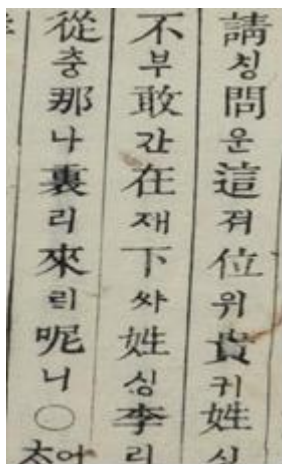 請칭問운這져位위貴귀姓싱
不부敢간在재下쌰姓싱李리
從충那나裏리來래呢니○